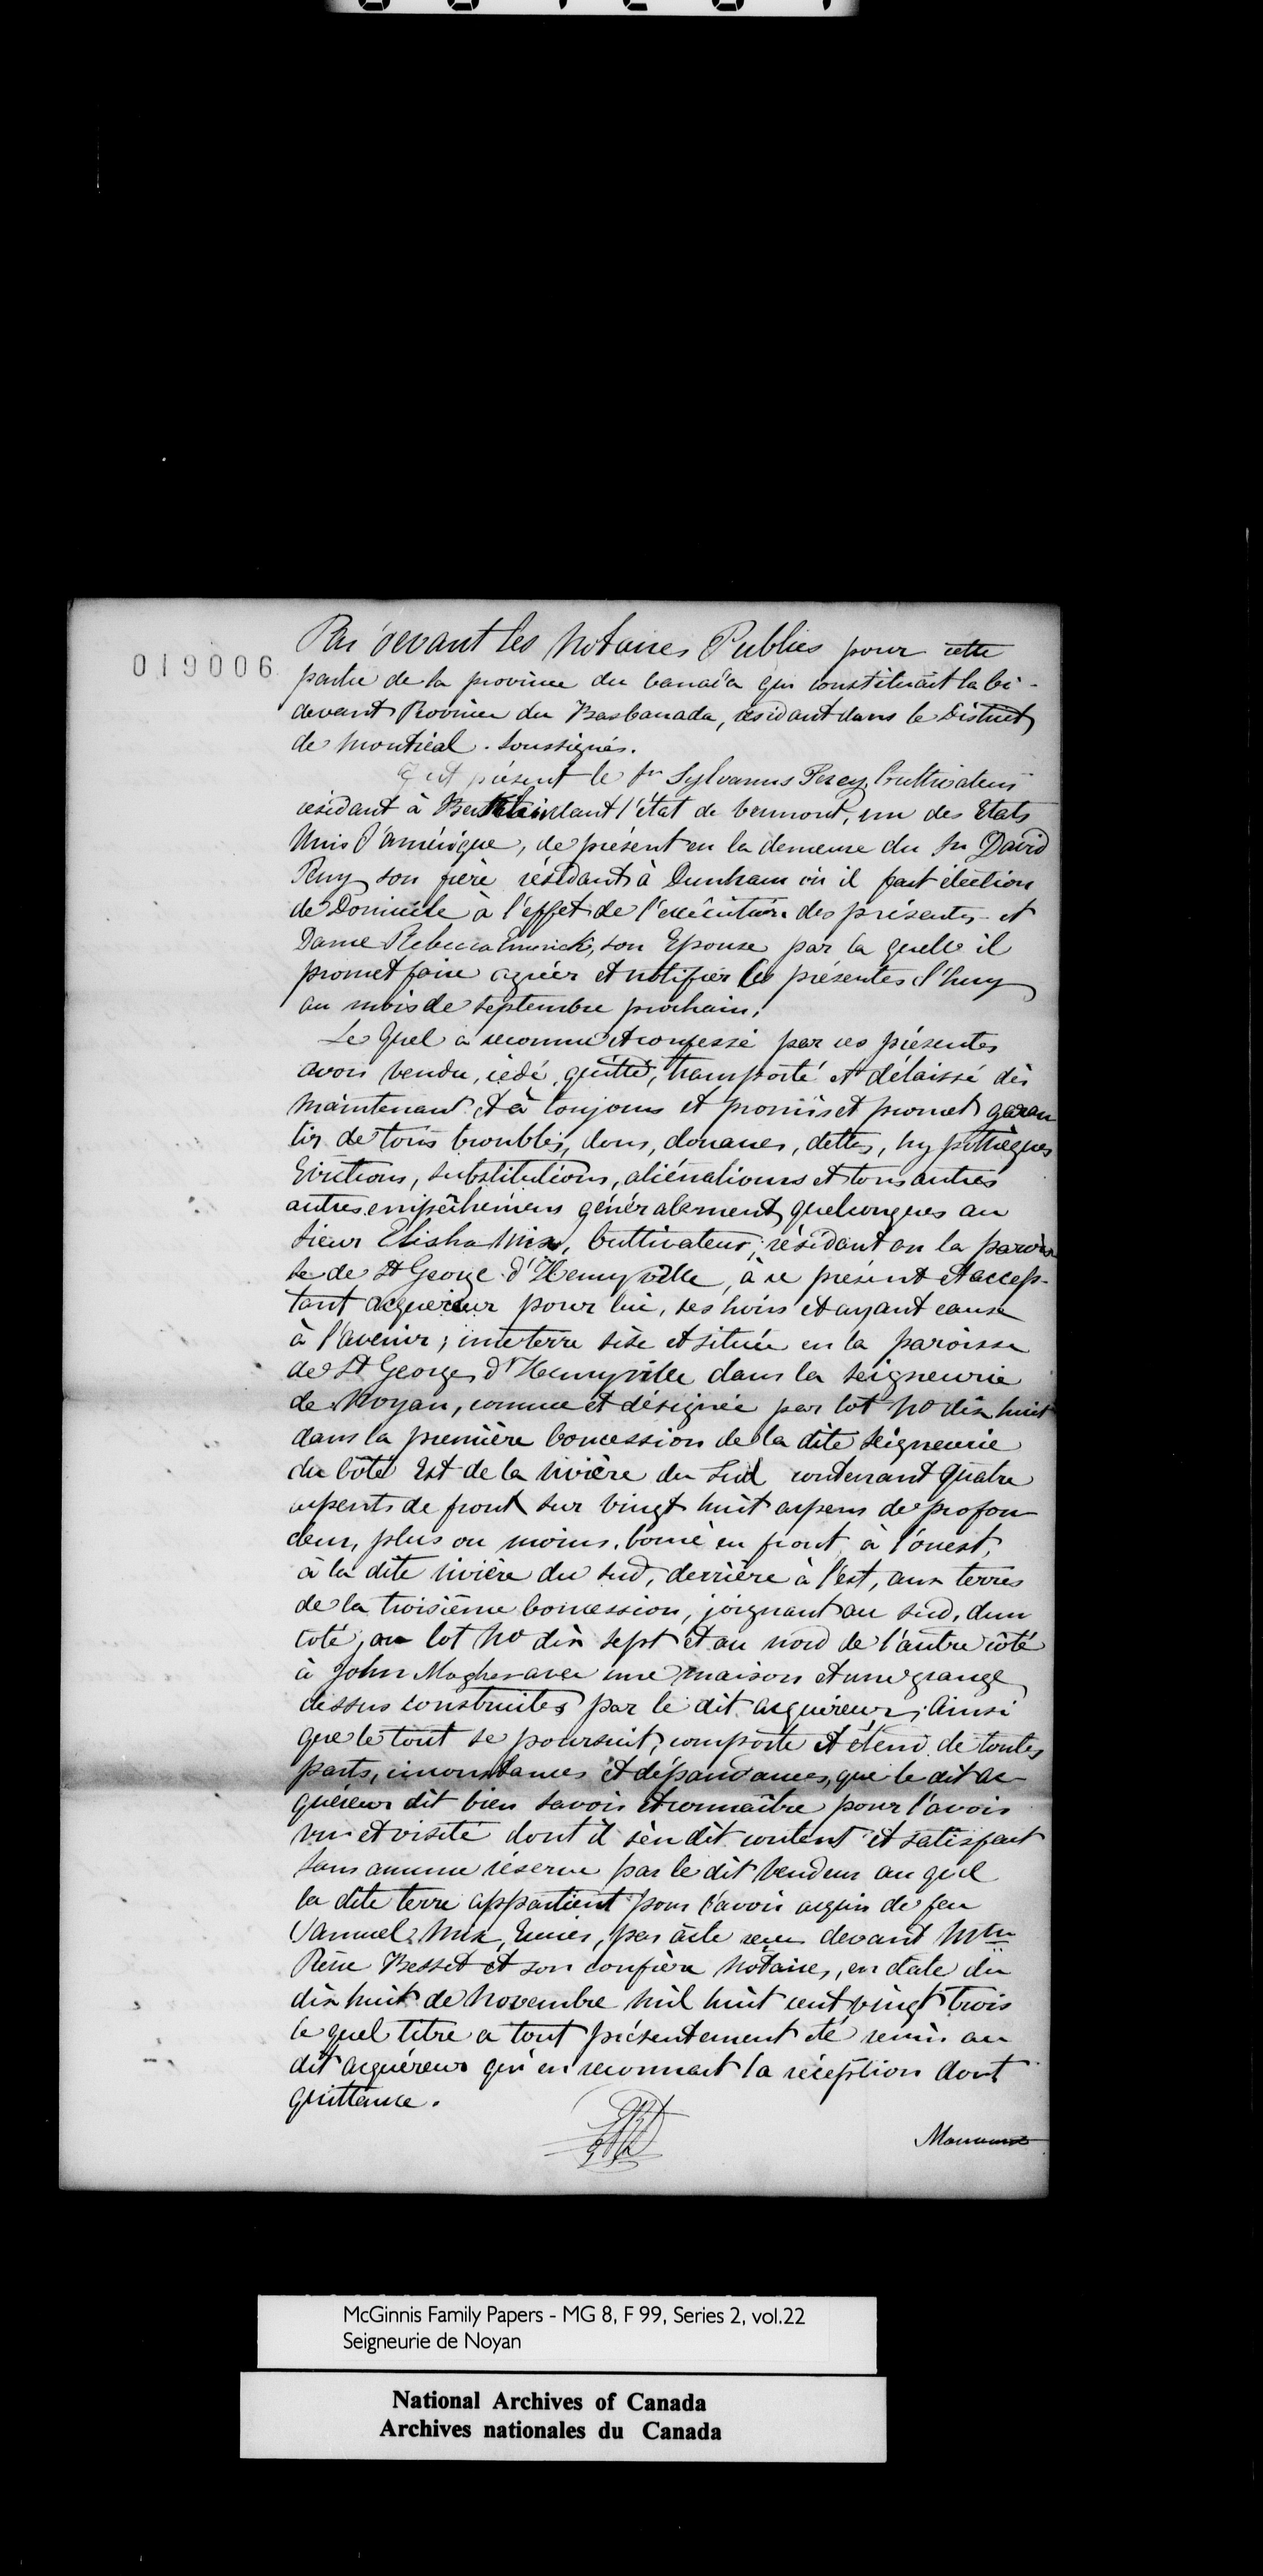 019006
Par devant les Notaires Publics pour cette
partie de la province du Canada qui constituait la ci-
devant Province du Bas Canada, résidant dans le District
de Montréal. Soussignés.
fut présent le Sr Sylvanus Percy, Cultivateur
résidant à l'état de Vermont, un des Etats
Unis d'amérique, de présent en la demeure du Sr David
Percy son frère résidant à Dunham où il fait élection
de Domicile à l'effet de l'exécution des présentes et
Dame Rebecca Emrick, son Epouse par la quelle il
promet faire agréer et ratifier les présentes d'huy
au mois de septembre prochain.
Le Quel a reconnu et confessé par ces présentes
avoir vendu, cédé, quitté, transporté et délaissé dès
maintenant et à toujours et promis et promet garan
tir de tous troubles, dons, douaires, dettes, hypothèques
Evictions, substitutions, aliénations et tous autres
autres empêchemens généralement quelconques au
Sieur Elisha Mix, Cultivateur, résidant en la parois
se de St George d'Henryville, à ce présent et accep-
tant acquereur pour lui, ses hoirs et ayant cause
à l'avenir; une terre sise et située en la paroisse
de St George d'Henryville dans la Seigneurie
de Noyan, connue et désignée par lot No dix huit
dans la première Concession de la dite Seigneurie
du Coté Est de la rivière du Sud contenant quatre
arpents de front sur vingt huit arpens de profon
deur, plus ou moins. borné en front à l'ouest,
à la dite rivière du sud, derrière à l'est, aux terres
de la troisième Concession, joignant au sud, d'un
coté, au lot No dix sept et au nord de l'autre côté
à John Magher avec une maison et une grange
dessus construites par le dit acquéreur; ainsi
que le tout se poursuit, comporte et étend de toutes
parts, circonstances et dépandances, que le dit ac
quéreur dit bien savoir et connaître pour l'avoir
vu et visité dont il s'en dit content et satisfait
sans aucune réserve par le dit vendeur au quel
la dite terre appartient pour l'avoir acquis de feu
Samuel Mix, Ecuier, par acte reçu devant Mtre
Réné Besset et son confrère Notaires, en date du
dix huit de Novembre mil huit cent vingt trois
le quel titre a tout présentement été remis au
dit acquéreur qui en reconnait la réception dont
quittance.
McGinnis Family Papers - MG 8, F 99, Series 2, vol.22
Seigneurie de Noyan
National Archives of Canada
Archives nationales du Canada